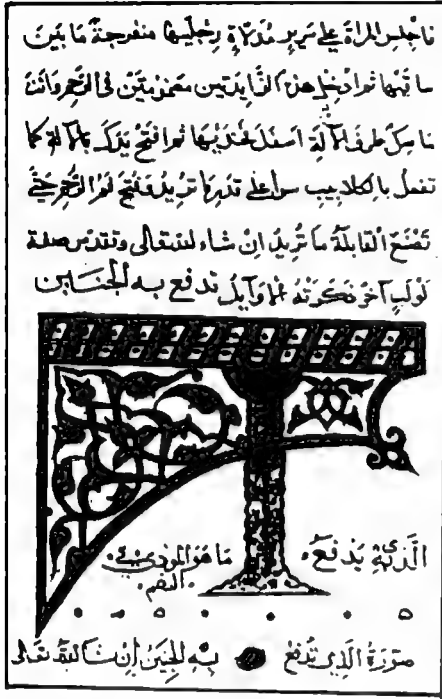 فاجلس المراة على سرير مدلاة رجليها منفرجة ما بين
ساقيها ثم ادخل هذه الزايدتين مضمومتين فى الرحم وانت
ماسك طرف الآلة اسفل فخذيها ثم افتح يدك بالآلة كما
تفعل بالكلاليب سوا على قدر ما تريد فتح فم الرحم حتى
تصنع القابلة ما تريد ان شاء الله تعالى وتقدس صفة
لولب آخر ذكرته الاوايل تدفع به الجنين
الذى يدفع ما هو الموذى
صورة الذى تدفع به الجنين ان شا الله تعالى